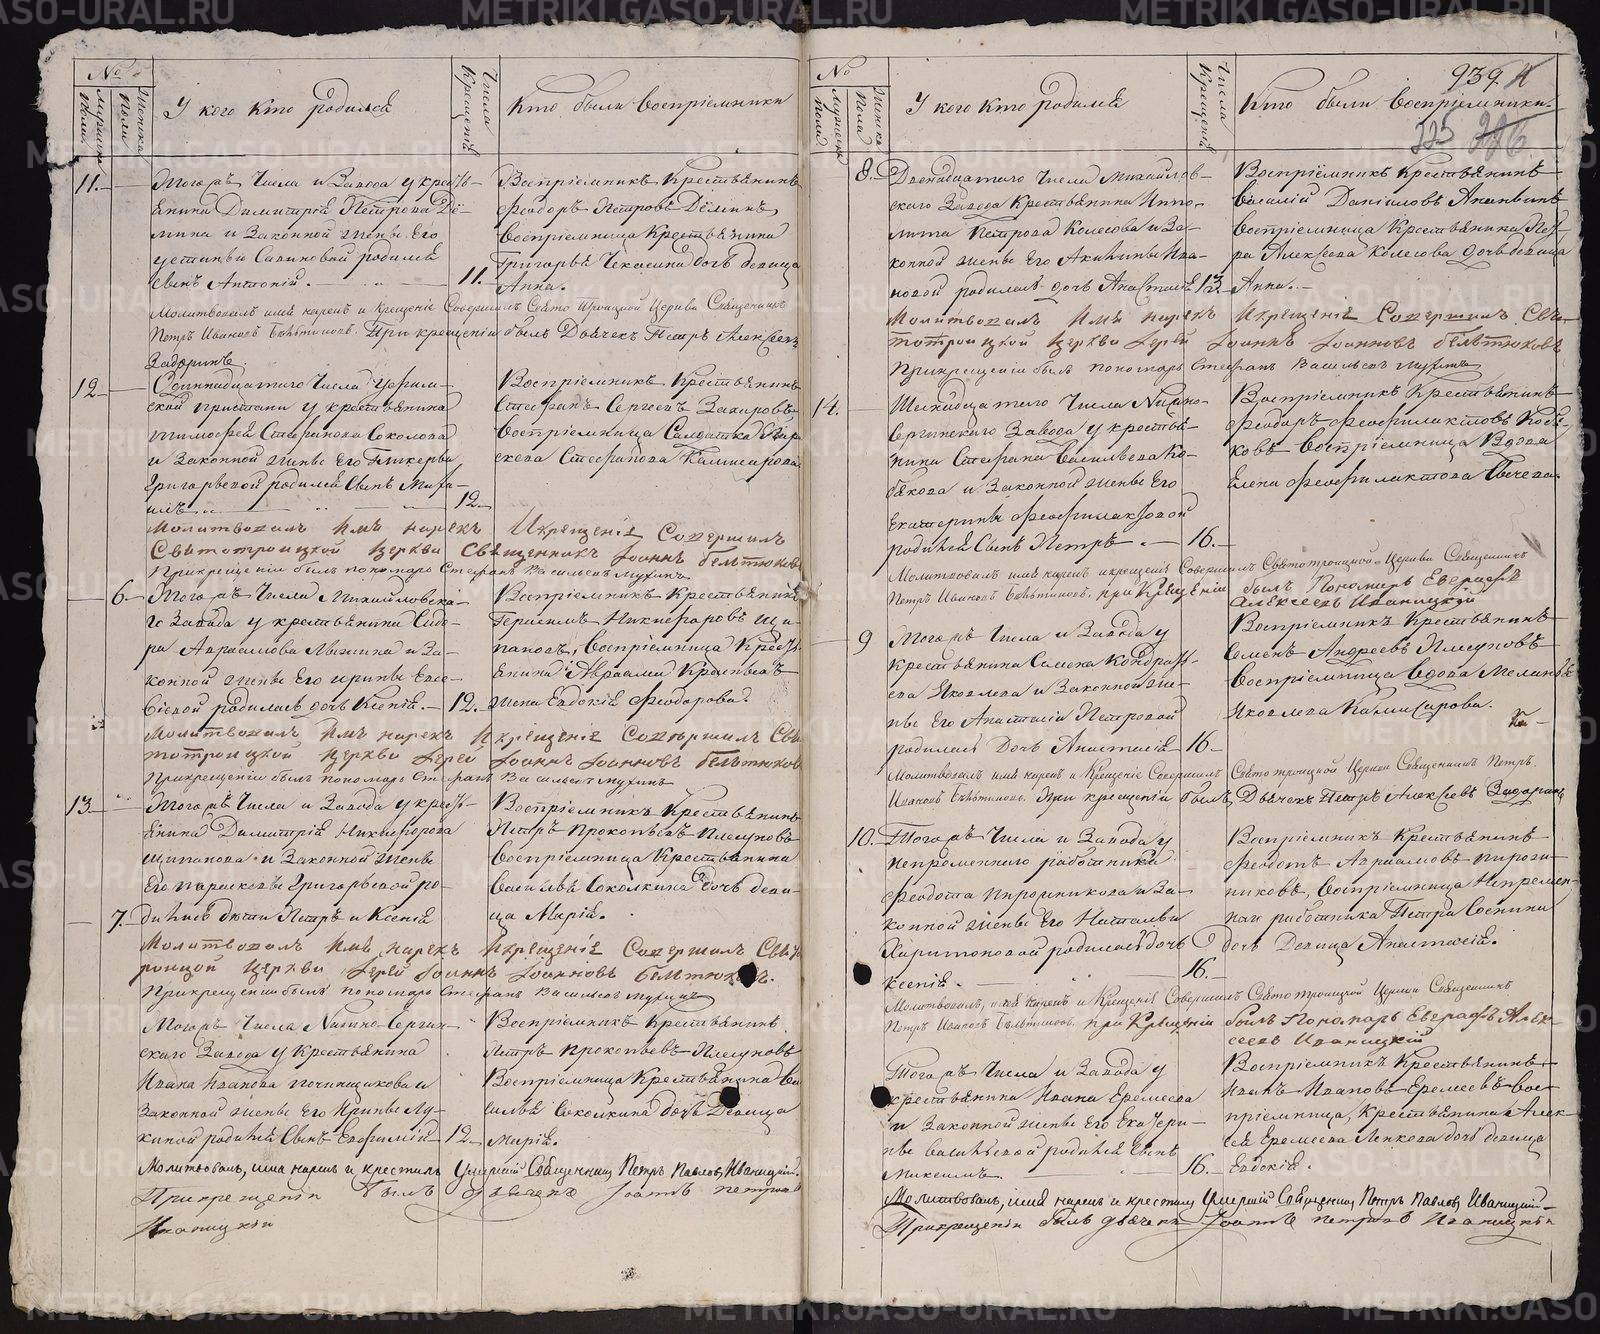 №
Мужеска пола
Женска пола
У кого кто родился
Числа Крещенія
Кто были Воспріемники
11.
Тогожъ Числа и Завода у кресть-
янина Димитрія Петрова Дё-
мина и Законной жены Его
Устиньи Савиновой родился
сынъ Антоній.
11.
Воспріемникъ Крестьянинъ
Феодоръ Петровъ Дёминъ
Воспріемница Крестьянина
Григорья дочь девица
Анна.
Молитвовалъ имя нарекъ и Крещеніе Совершилъ Свято Троицкой Церкви Священникъ
Петръ Ивановъ Бѣльтюковъ. При крещеніи былъ Дьячекъ Петръ Алексѣевъ
Задоринъ.
12
Одиннадцатаго Числа Уфим-
ской пристани у крестьянина
Тимофея Стефанова Соколова
и Законной жены Его Гликерьи
Григорьевой родился Сынъ Миха-
илъ
12.
Воспріемникъ Крестьянинъ
Стефанъ Сергеевъ
Воспріемница Салдатка Пара
скева Стефанова
Молитвовалъ Имя нарекъ Икрещеніе Совершилъ
Святотроицкой церкви Священникъ Іоаннъ Бельтюковъ
Прикрещеніи былъ пономарь Стефанъ Васильевъ Мухинъ
6.
Тогожъ Числа Михайловска-
го Завода у крестьянина Сидо-
ра Авраамова и За-
конной жены Его Ирины Евсе-
віевой родилась дочь Ксенія.
12.
Воспріемникъ Крестьянинъ
Герасимъ Никифоровъ Щи-
пановъ, Воспріемница Кресть-
янина Авраамія
жена Евдокія Феодорова.
Молитвовалъ Имя нарекъ Икрещеніе Совершилъ Свя
тотроицкой церкви Іерей Іоаннъ Іоанновъ Бельтюковъ
Прикрещеніи былъ пономарь Стефанъ Васильевъ Мухинъ
13.
Тогожъ Числа и Завода у кресть-
янина Димитрія Никифорова
Щипанова и Законной жены
Его Парасковьи Григорьевой ро-
7.
дились дети Петръ и Ксенія
Воспріемникъ Крестьянинъ
Петръ Прокопьевъ Плеуновъ
Воспріемница Крестьянина
Василья Соколкина дочь деви-
ца Марія.
Молитвовалъ Имя нарекъ Икрещеніе Совершилъ Свят
роицкой церкви Іерей Іоаннъ Іоанновъ Бельтюковъ.
Прикрещеніи былъ пономарь Стефанъ Васильевъ Мухинъ
Тогожъ Числа Нижне-Сергин-
скаго Завода у Крестьянина
Ивана Иванова Починщикова и
Законной жены Его Ирины Лу-
киной родился Сынъ Евфимій
12.
Воспріемникъ Крестьянинъ
Петръ Прокопьевъ Плеуновъ
Воспріемница Крестьянина Ва
силья Соколкина дочь Девица
Марія.
Молитвовалъ, имя нарекъ и крестилъ умершій Священникъ Петръ Павловъ Иваницкій.
Прикрещеніи былъ дьячекъ Іоаннъ Петровъ
Иваницкій
939.
225
226
№
Мужеска пола
Женска пола
У кого Кто родился
Числа Крещенія
Кто были Воспріемники.
8.
Двенадцатаго Числа Михайлов-
скаго Завода Крестьянина Иппо-
лита Петрова Колегова и За-
конной жены Его Акилины Ива-
новой родилась дочь Анастасія
13.
Воспріемникъ Крестьянинъ
Василій Даніиловъ Ананьинъ
Воспріемница Крестьянина Пет-
ра Алексеева Колегова дочь девица
Анна.
Молитвовалъ Имя нарекъ Икрещеніе Совершилъ Свя-
тотроицкой церкви Іерей Іоаннъ Іоанновъ Бельтюковъ
Прикрещеніи былъ пономарь Стефанъ Васильевъ Мухинъ
14.
Шеснадцатаго Числа Нижне-
Сергинскаго Завода у крестья-
нина Стефана Васильева Ко-
бякова и Законной жены Его
Екатерины Феофилактовой
родился Сынъ Петръ.
16.
Воспріемникъ Крестьянинъ
Феодоръ Феофилактовъ Кобя-
ковъ Воспріемница Вдова
Елена Феофилактова
Молитвовалъ имя нарекъ и крещеніе Совершилъ Святотроицкой Церкви Священникъ
Петръ Ивановъ Бѣльтюковъ, при Крещеніи былъ Пономарь Евграфъ
Алексеевъ Иваницкій
9
Тогожъ Числа и Завода у
крестьянина Семена Кондрать-
ева Яковлева и Законной же-
ны Его Анастасіи Петровой
родилась Дочь Анастасія
16.
Воспріемникъ Крестьянинъ
Семенъ Андреевъ Плеуновъ
Воспріемница Вдова Меланья
Яковлева Камисарова.
Молитвовалъ имя нарекъ и Крещеніе Совершилъ Святотроицкой Церкви Священникъ Петръ
Ивановъ Бѣльтюковъ. При крещеніи былъ, Дьячекъ Петръ Алексѣевъ Задоринъ
10.
Тогожъ Числа и Завода у
непременнаго работника
Феодота Пирожникова и За-
конной жены Его Натальи
Харитоновой родилась дочь
Ксенія.
16.
Воспріемникъ Крестьянинъ
Феодотъ Авраамовъ Пирож-
никовъ, Воспріемница Непремен-
наго работника Петра Соснина
дочь Девица Анастасія.
Молитвовалъ, имя нарекъ и Крещеніе Совершилъ Святотроицкой Церкви Священникъ
Петръ Ивановъ Бѣльтюковъ, при Крещеніи былъ Пономарь Евграфъ Алек-
сеевъ Иваницкій
Тогожъ Числа и Завода у
крестьянина Ивана Еремеева
и Законной жены Его Екатери-
ны Васильевой родился Сынъ
Максимъ.
16.
Воспріемникъ Крестьянинъ
Иванъ Ивановъ Еремеевъ Вос-
пріемница, Крестьянина Алек-
сея Еремеева дочь девица
Евдокія.
Молитвовалъ, имя нарекъ и крестилъ умершій Священникъ Петръ Павловъ Иваницкій
Прикрещеніи былъ дьячекъ Іоаннъ Петровъ Иваницкій
METRIKI.GASO-URAL.RU